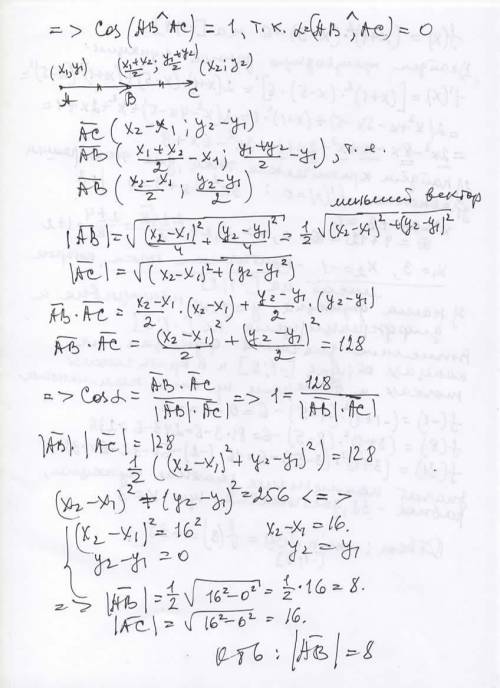 => Cos(AB^AC) = 1, т.к. α=(AB^AC) = 0
(x₁,y₁) (x₁+x₂/2; y₁+y₂/2) (x₂; y₂)
A B C
AC (x₂-x₁; y₂-y₁)
AB (x₁+x₂/2 - x₁; y₁+y₂/2 - y₁), т.е.
AB (x₂-x₁/2; y₂-y₁/2)
меньший вектор
|AB| = √((x₂-x₁)²/4 + (y₂-y₁)²/4) = 1/2 √((x₂-x₁)²+(y₂-y₁)²
|AC| = √((x₂-x₁)²+(y₂-y₁)²
AB·AC = x₂-x₁/2 ·(x₂-x₁) + y₂-y₁/2 ·(y₂-y₁)
AB·AC = (x₂-x₁)²/2 + (y₂-y₁)²/2 = 128
=> Cosα = AB·AC/|AB|·|AC| => 1 = 128/|AB|·|AC|
|AB|·|AC| = 128
1/2 ((x₂-x₁)² + y₂-y₁)²) = 128
(x₂-x₁)² + (y₂-y₁)² = 256 <=>
(x₂-x₁)² = 16² x₂-x₁ = 16.
y₂-y₁ = 0 y₂ = y₁
=> |AB| = 1/2 √(16²-0²) = 1/2 · 16 = 8.
|AC| = √(16²-0²) = 16.
Отв: |AB| = 8